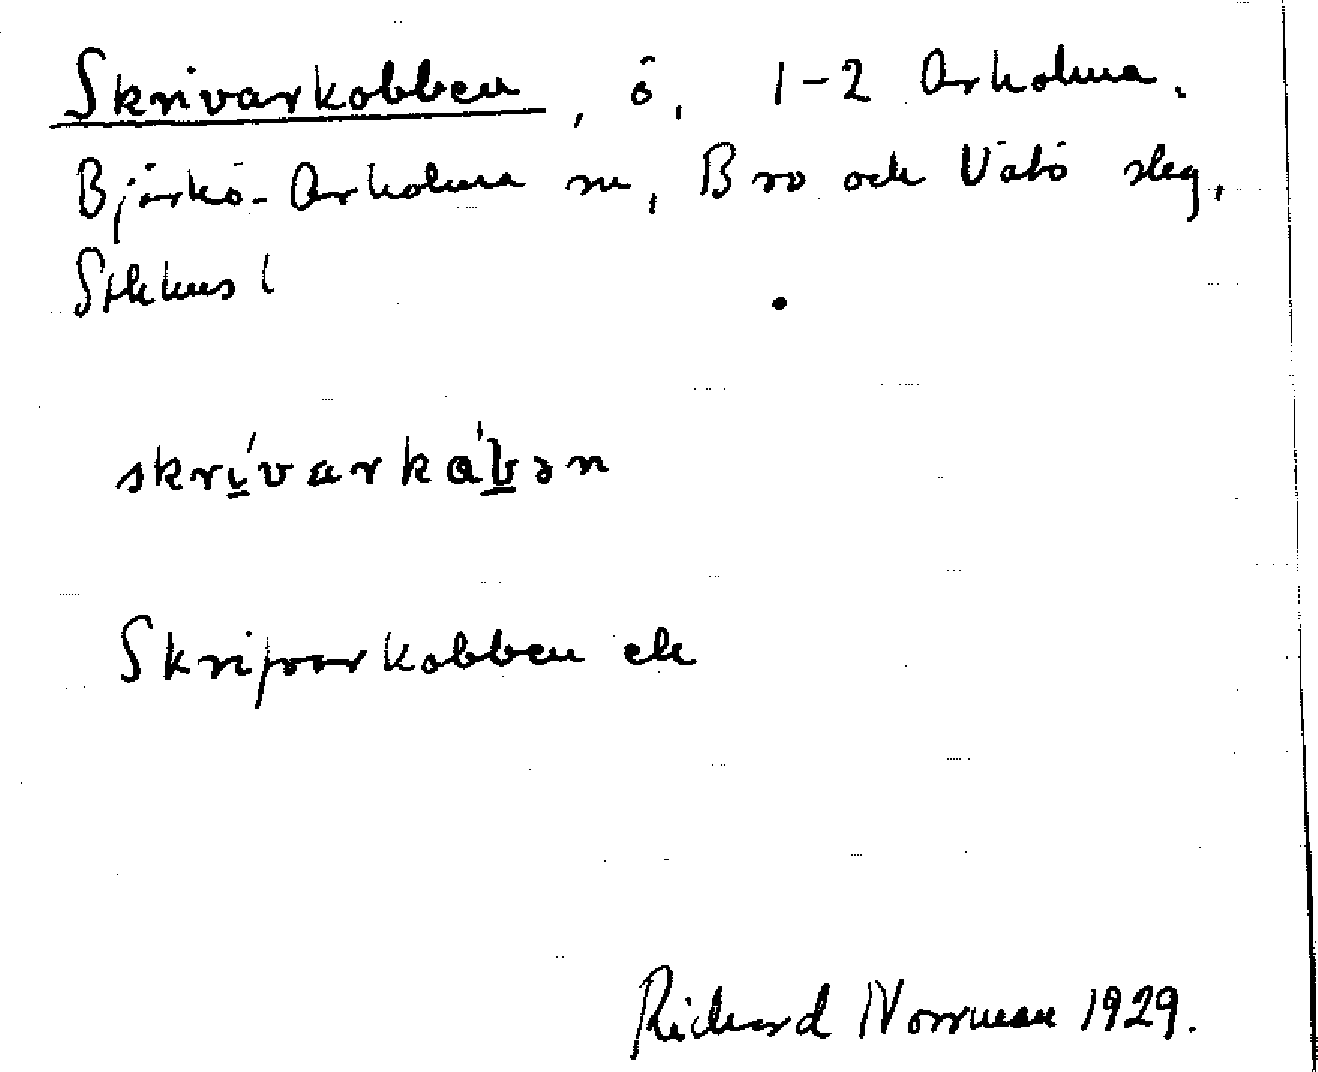 Skrivarkobben, ö, 1-2 Arholma.
Björkö-Arholma sn, Bro och Vätö slg,
Sthlms l
skrí̱varkåˈḇən
Skrifvarkobben ek
Richard Norrman 1929.